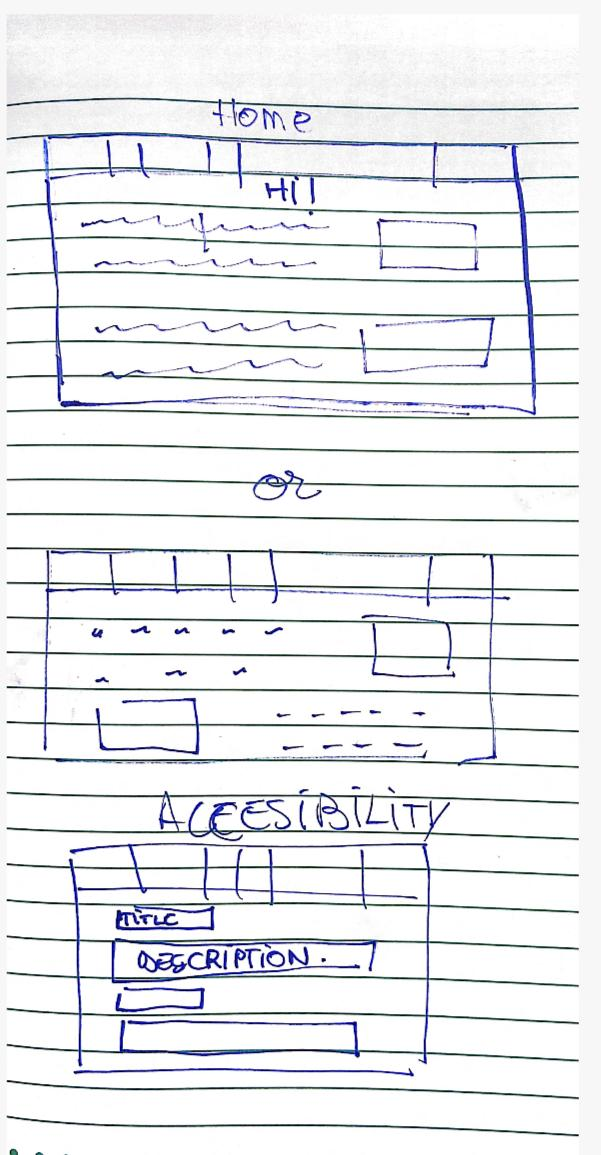 Home
Hi!
or
ACCESIBILITY
TITLE
DESCRIPTION.